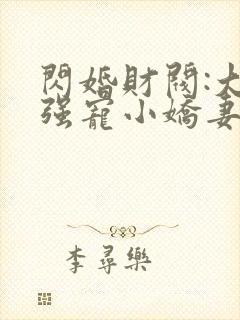 閃婚財閥:大
強寵小嬌妻
李尋樂